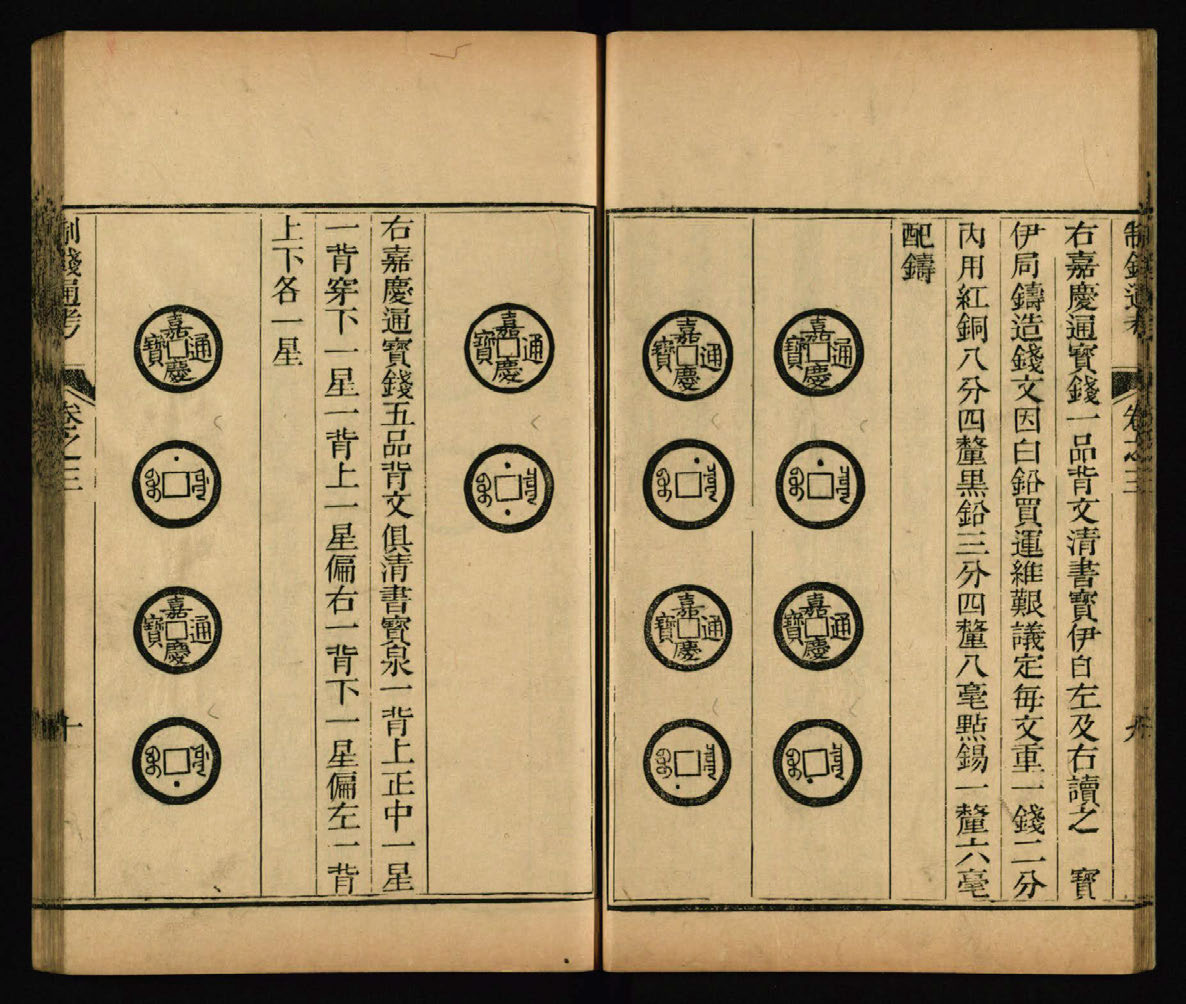 制錢通考 卷之三 九
右嘉慶通寳錢一品背文清書寳伊自左及右讀之 寳
伊局鑄造錢文因白鉛買運維艱議定每文重一錢二分
內用紅銅八分四釐黑鉛三分四釐八毫點錫一釐六毫
配鑄
嘉慶通寳
嘉慶通寳
嘉慶通寳
嘉慶通寳
嘉慶通寳
右嘉慶通寳錢五品背文俱清書寳泉一背上正中一星
一背穿下一星一背上一星偏右一背下一星偏左一背
上下各一星
嘉慶通寳
嘉慶通寳
制錢通考 卷之三 十